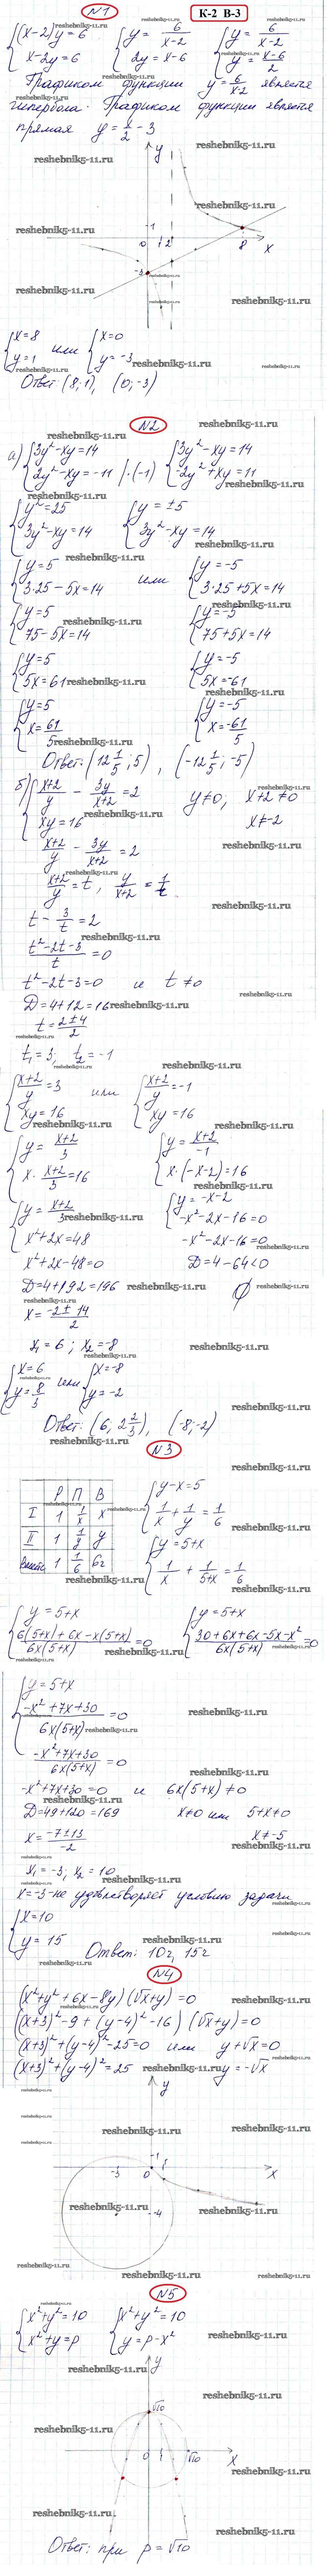 N1
К-2 В-3
{(x-2)y=6 {y=6/(x-2) {y=6/(x-2)
{x-2y=6 {2y=x-6 {y=(x-6)/2
Графиком функции y=6/(x-2) является
гипербола. Графиком функции является
прямая y=x/2-3
y
1
0 1 2 8 x
-3
{x=8 или {x=0
{y=1 {y=-3
Ответ: (8;1), (0;-3)
N2
а) {3y²-xy=14 {3y²-xy=14
{2y²-xy=-11 |·(-1) {-2y²+xy=11
{y²=25 {y=±5
{3y²-xy=14 {3y²-xy=14
{y=5 или {y=-5
{3·25-5x=14 {3·25+5x=14
{y=5 {y=-5
{75-5x=14 {75+5x=14
{y=5 {y=-5
{5x=61 {5x=-61
{y=5 {y=-5
{x=61/5 {x=-61/5
Ответ: (12 1/5; 5), (-12 1/5; -5)
б) {(x+2)/y - 3y/(x+2)=2 y≠0; x+2≠0
{xy=16 x≠-2
(x+2)/y - 3y/(x+2)=2
(x+2)/y=t, y/(x+2)=1/t
t-3/t=2
(t²-2t-3)/t=0
t²-2t-3=0 и t≠0
D=4+12=16
t=(2±4)/2
t₁=3, t₂=-1
{(x+2)/y=3 или {(x+2)/y=-1
{xy=16 {xy=16
{y=(x+2)/3 {y=(x+2)/-1
{x·(x+2)/3=16 {x·(-x-2)=16
{y=(x+2)/3 {y=-x-2
{x²+2x=48 {-x²-2x-16=0
x²+2x-48=0 -x²-2x-16=0
D=4+192=196 D=4-64<0
x=(-2±14)/2 ∅
x₁=6; x₂=-8
{x=6 или {x=-8
{y=8/3 {y=-2
Ответ: (6, 2 2/3), (-8;-2)
N3
Р П В {y-x=5
I 1 1/x x {1/x+1/y=1/6
II 1 1/y y {y=5+x
Вместе 1 1/6 6ч {1/x+1/(5+x)=1/6
{y=5+x {y=5+x
{(6(5+x)+6x-x(5+x))/(6x(5+x))=0 {(30+6x+6x-5x-x²)/(6x(5+x))=0
{y=5+x
{(-x²+7x+30)/(6x(5+x))=0
(-x²+7x+30)/(6x(5+x))=0
-x²+7x+30=0 и 6x(5+x)≠0
D=49+120=169 x≠0 или 5+x≠0
x=(-7±13)/-2 x≠-5
x₁=-3; x₂=10
x=-3-не удовлетворяет условию задачи
{x=10
{y=15 Ответ: 10ч, 15ч
N4
(x²+y²+6x-8y)(√x+y)=0
((x+3)²-9+(y-4)²-16)(√x+y)=0
(x+3)²+(y-4)²-25=0 или y+√x=0
(x+3)²+(y-4)²=25 y=-√x
y
-1
-3 0 1 x
-4
N5
{x²+y²=10 {x²+y²=10
{x²+y=p {y=p-x²
y
√10
0 1 √10 x
Ответ: при p=√10
reshebnik5-11.ru